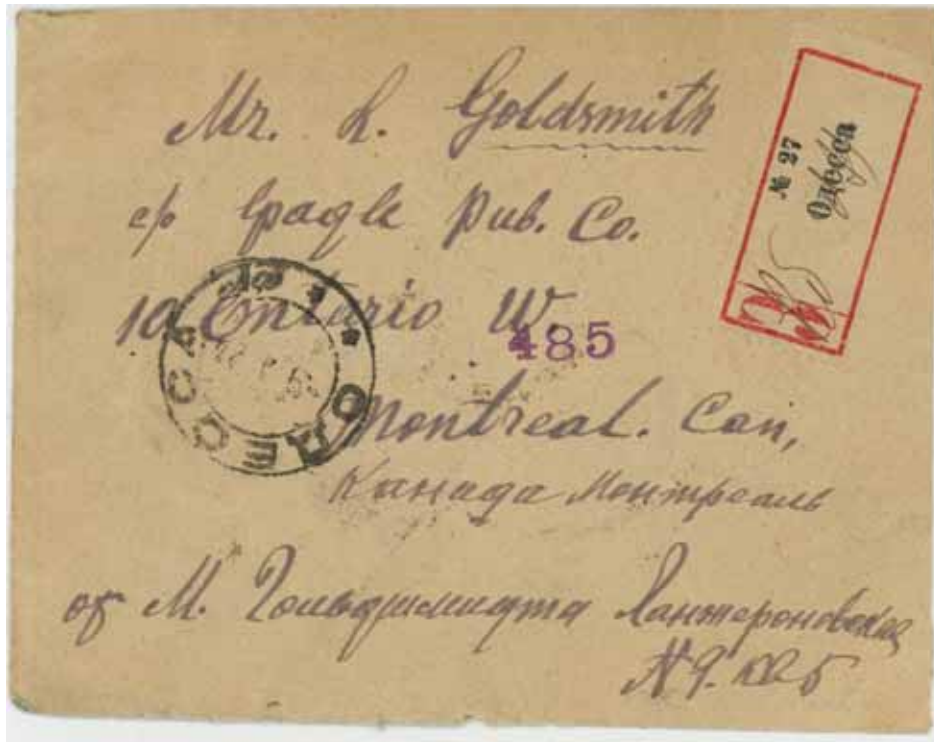 Mr. L. Goldsmith
c/o Eagle Pub. Co.
10 Ontario W.
485
Montreal. Can,
Канада Монреаль
от М. Гольдшмидта Ланжероновская
N 9. кв 5
№ 27
Одесса
ОДЕССА